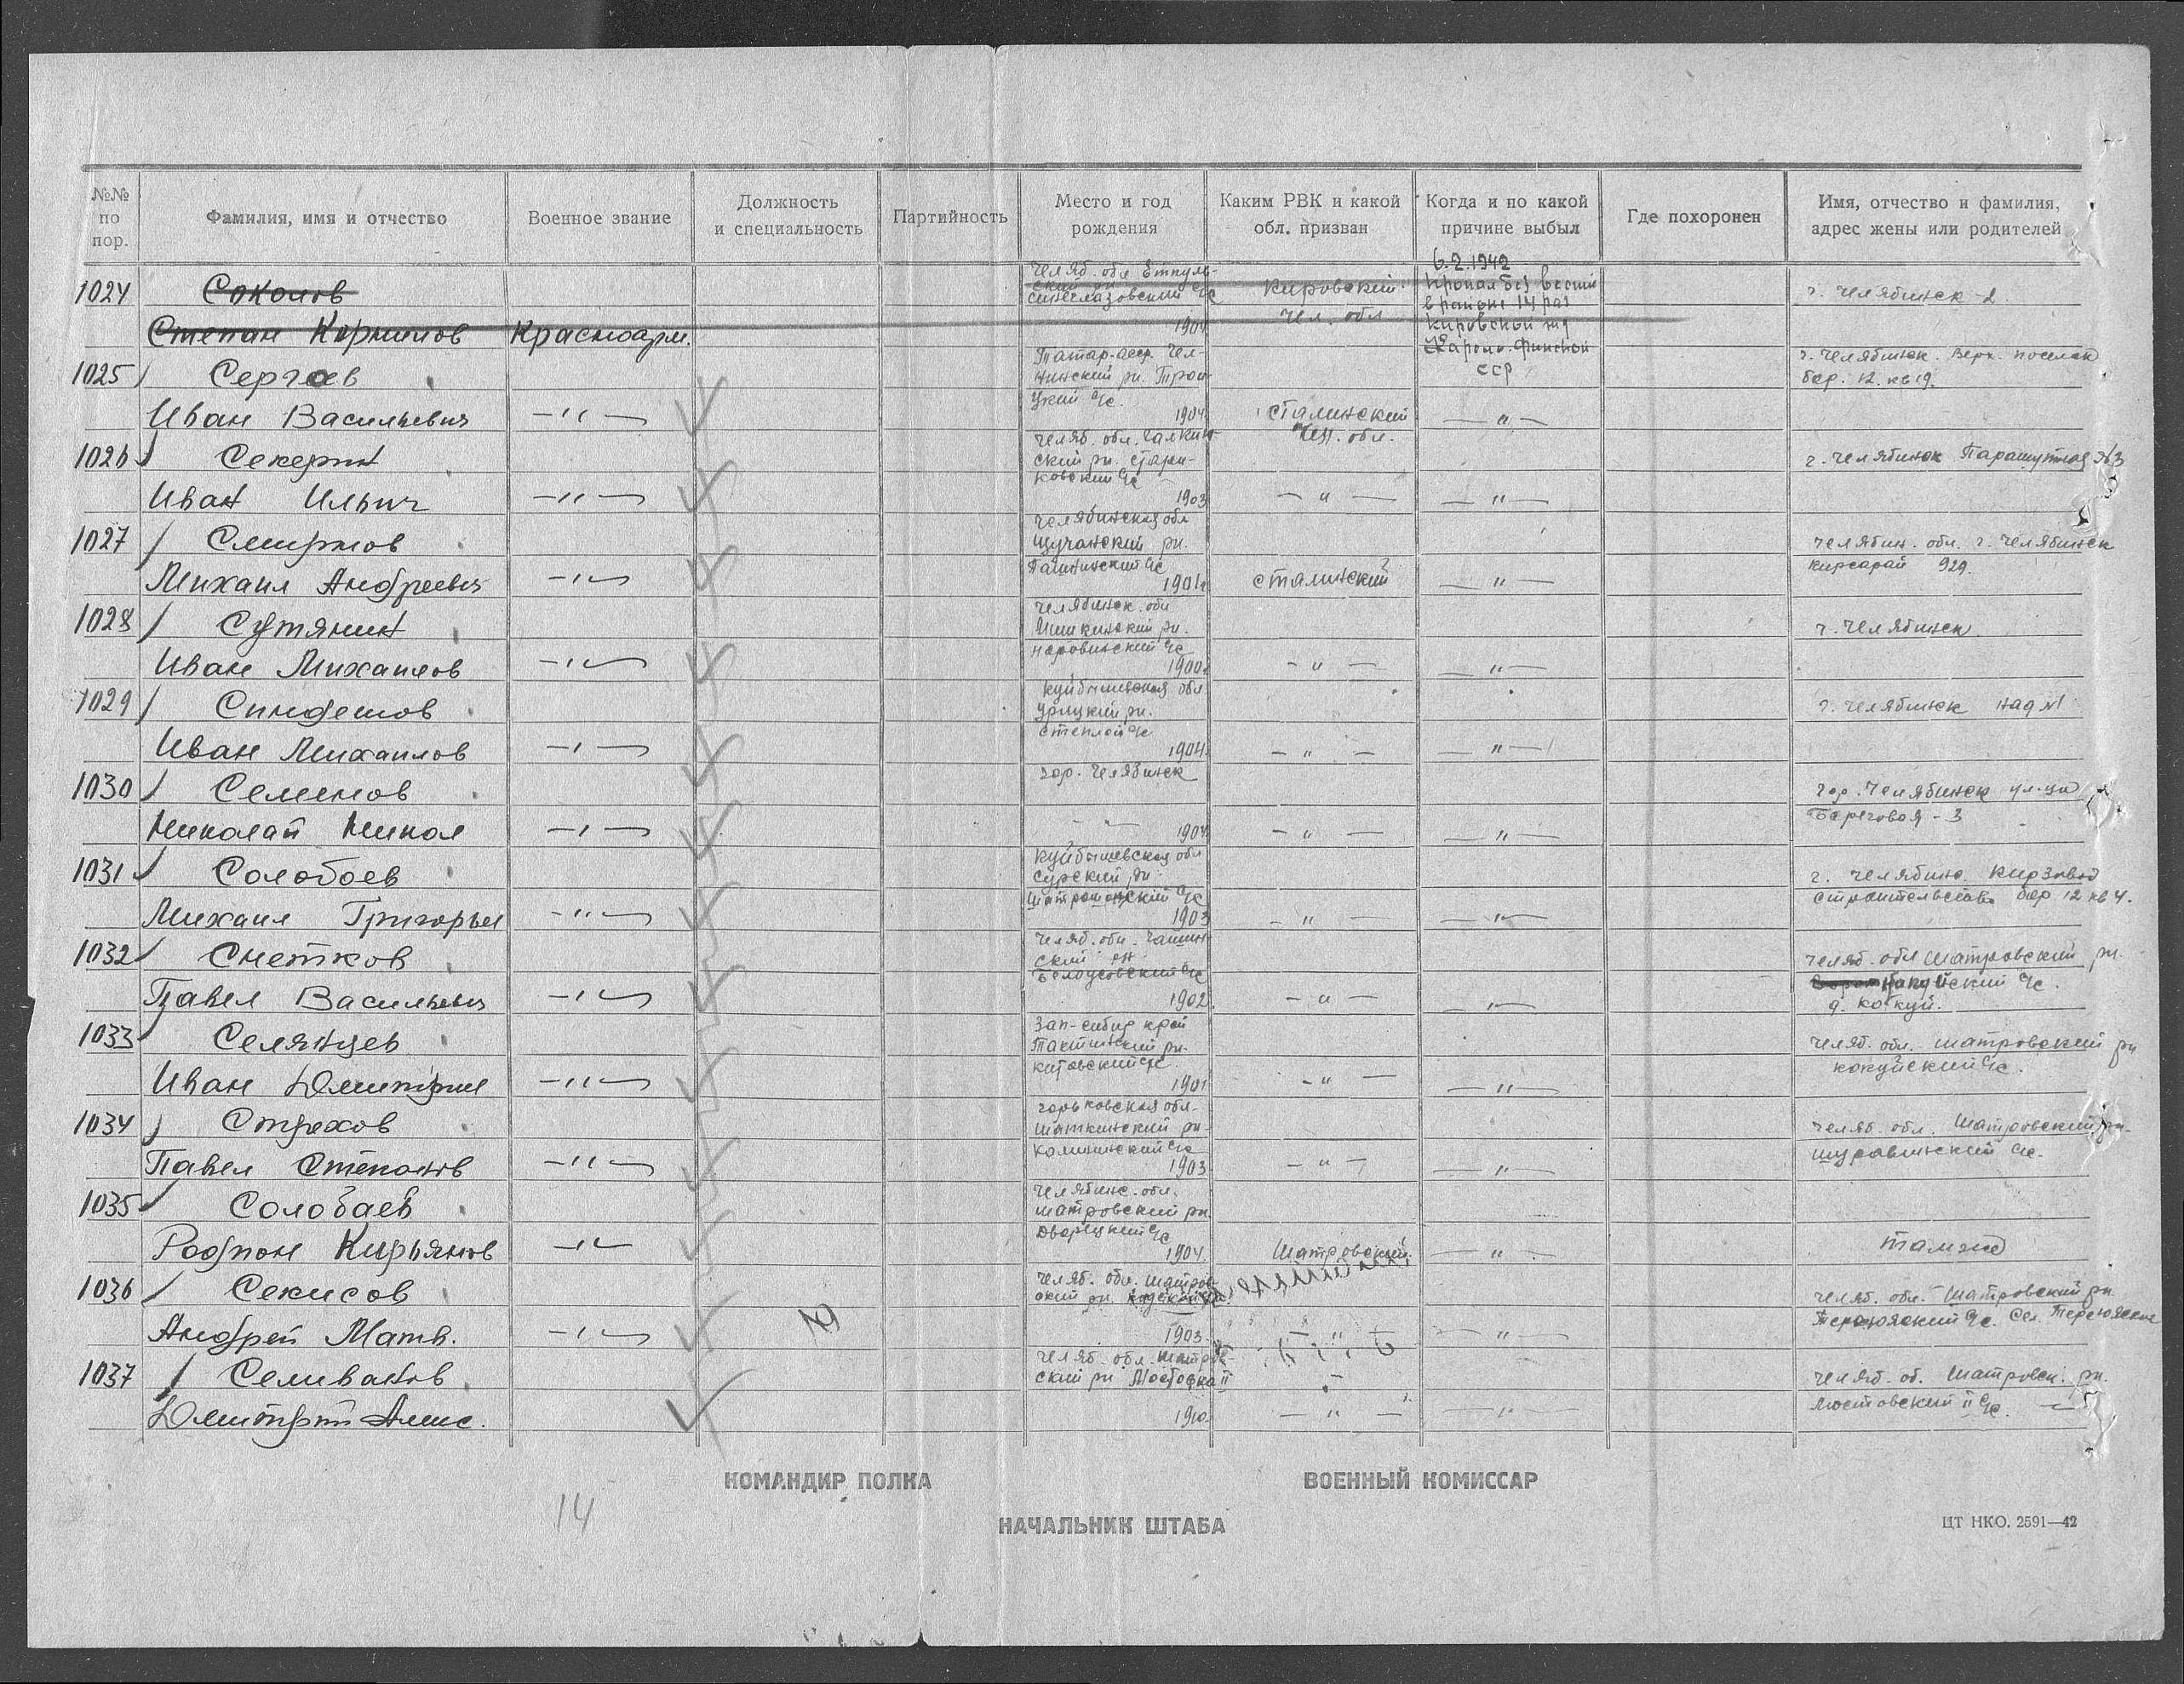 №№ по пор.
Фамилия, имя и отчество
Военное звание
Должность и специальность
Партийность
Место и год рождения
Каким РВК и какой обл. призван
Когда и по какой причине выбыл
Где похоронен
Имя, отчество и фамилия, адрес жены или родителей
1024 Соколов
Степан Корнилов Красноарм.
Челяб. обл Еткуль-
ский рн
Синеглазовский с/с
1904
Кировский
Чел. обл
6.2.1942
Пропал без вести
в районе 14 раз
Кировской жд
Карело-Финской
ССР
г. Челябинск-2
1025 Сергеев
Иван Васильевич —"—
Татар-асср. Чел-
нинский рн. Трои-
цкий с/с.
1904
Сталинский
Чел. обл.
—"—
г. Челябинск. Верх. поселок
бар. 12. кв 19.
1026 Секерин
Иван Ильич —"—
Челяб. обл. Галкин-
ский рн. Стари-
ковский с/с
1903
—"— —"—
г. Челябинск Парашутная №3
1027 Смирнов
Михаил Андреевич —"—
Челябинская обл
Щучанский рн.
с/с
1904
Сталинский
—"—
Челябин. обл. г. Челябинск
Кирсарай 929.
1028 Сутянин
Иван Михайлов —"—
Челябинск. обл
Мишкинский рн.
с/с
1900.
—"— —"—
г. Челябинск
1029 Синдешов
Иван Михайлов —"—
Куйбышевская обл
рн.
с/с
1904.
—"— —"—
г. Челябинск
1030 Семенов
Николай Никол —"—
гор. Челябинск
—"— 1904
—"— —"—
гор. Челябинск ул-ца
Береговая-3
1031 Солобоев
Михаил Григорьев —"—
Куйбышевская обл
Сурский рн
с/с
1903
—"— —"—
г. Челябинс. Кирзавод
строительство бар 12 кв 4.
1032 Снетков
Павел Васильевич —"—
Челяб. обл. Чашин-
ский рн
Белоусовский с/с
1902
—"— —"—
Челяб. обл Шатровский рн.
с/с.
д. Кокуй.
1033 Селянцев
Иван Дмитрие —"—
Зап-сибир край
рн.
с/с.
1901
—"— —"—
Челяб. обл. Шатровский рн
Кокуйский с/с.
1034 Страхов
Павел Степанов —"—
Горьковская обл.
Шаткинский рн.
Калининский с/с
1903
—"— —"—
Челяб. обл. Шатровский рн.
с/с.
1035 Солобаев
Родион Кирьянов —"—
Челябинс. обл.
Шатровский рн.
Дворецкий с/с
1904.
Шатровский
—"—
там же
1036 Секисов
Андрей Матв. —"—
Челяб. обл. Шатров-
ский рн.
1903.
—"— —"—
Челяб. обл. Шатровский рн
с/с. Сел.
1037 Селиванов
Дмитрий
Челяб. обл. Шатров-
ский рн Мостовка II
1910.
—"— —"—
Челяб. об. Шатровск. рн.
Мостовский II с/с.
КОМАНДИР ПОЛКА
ВОЕННЫЙ КОМИССАР
НАЧАЛЬНИК ШТАБА
14
ЦТ НКО. 2591—42